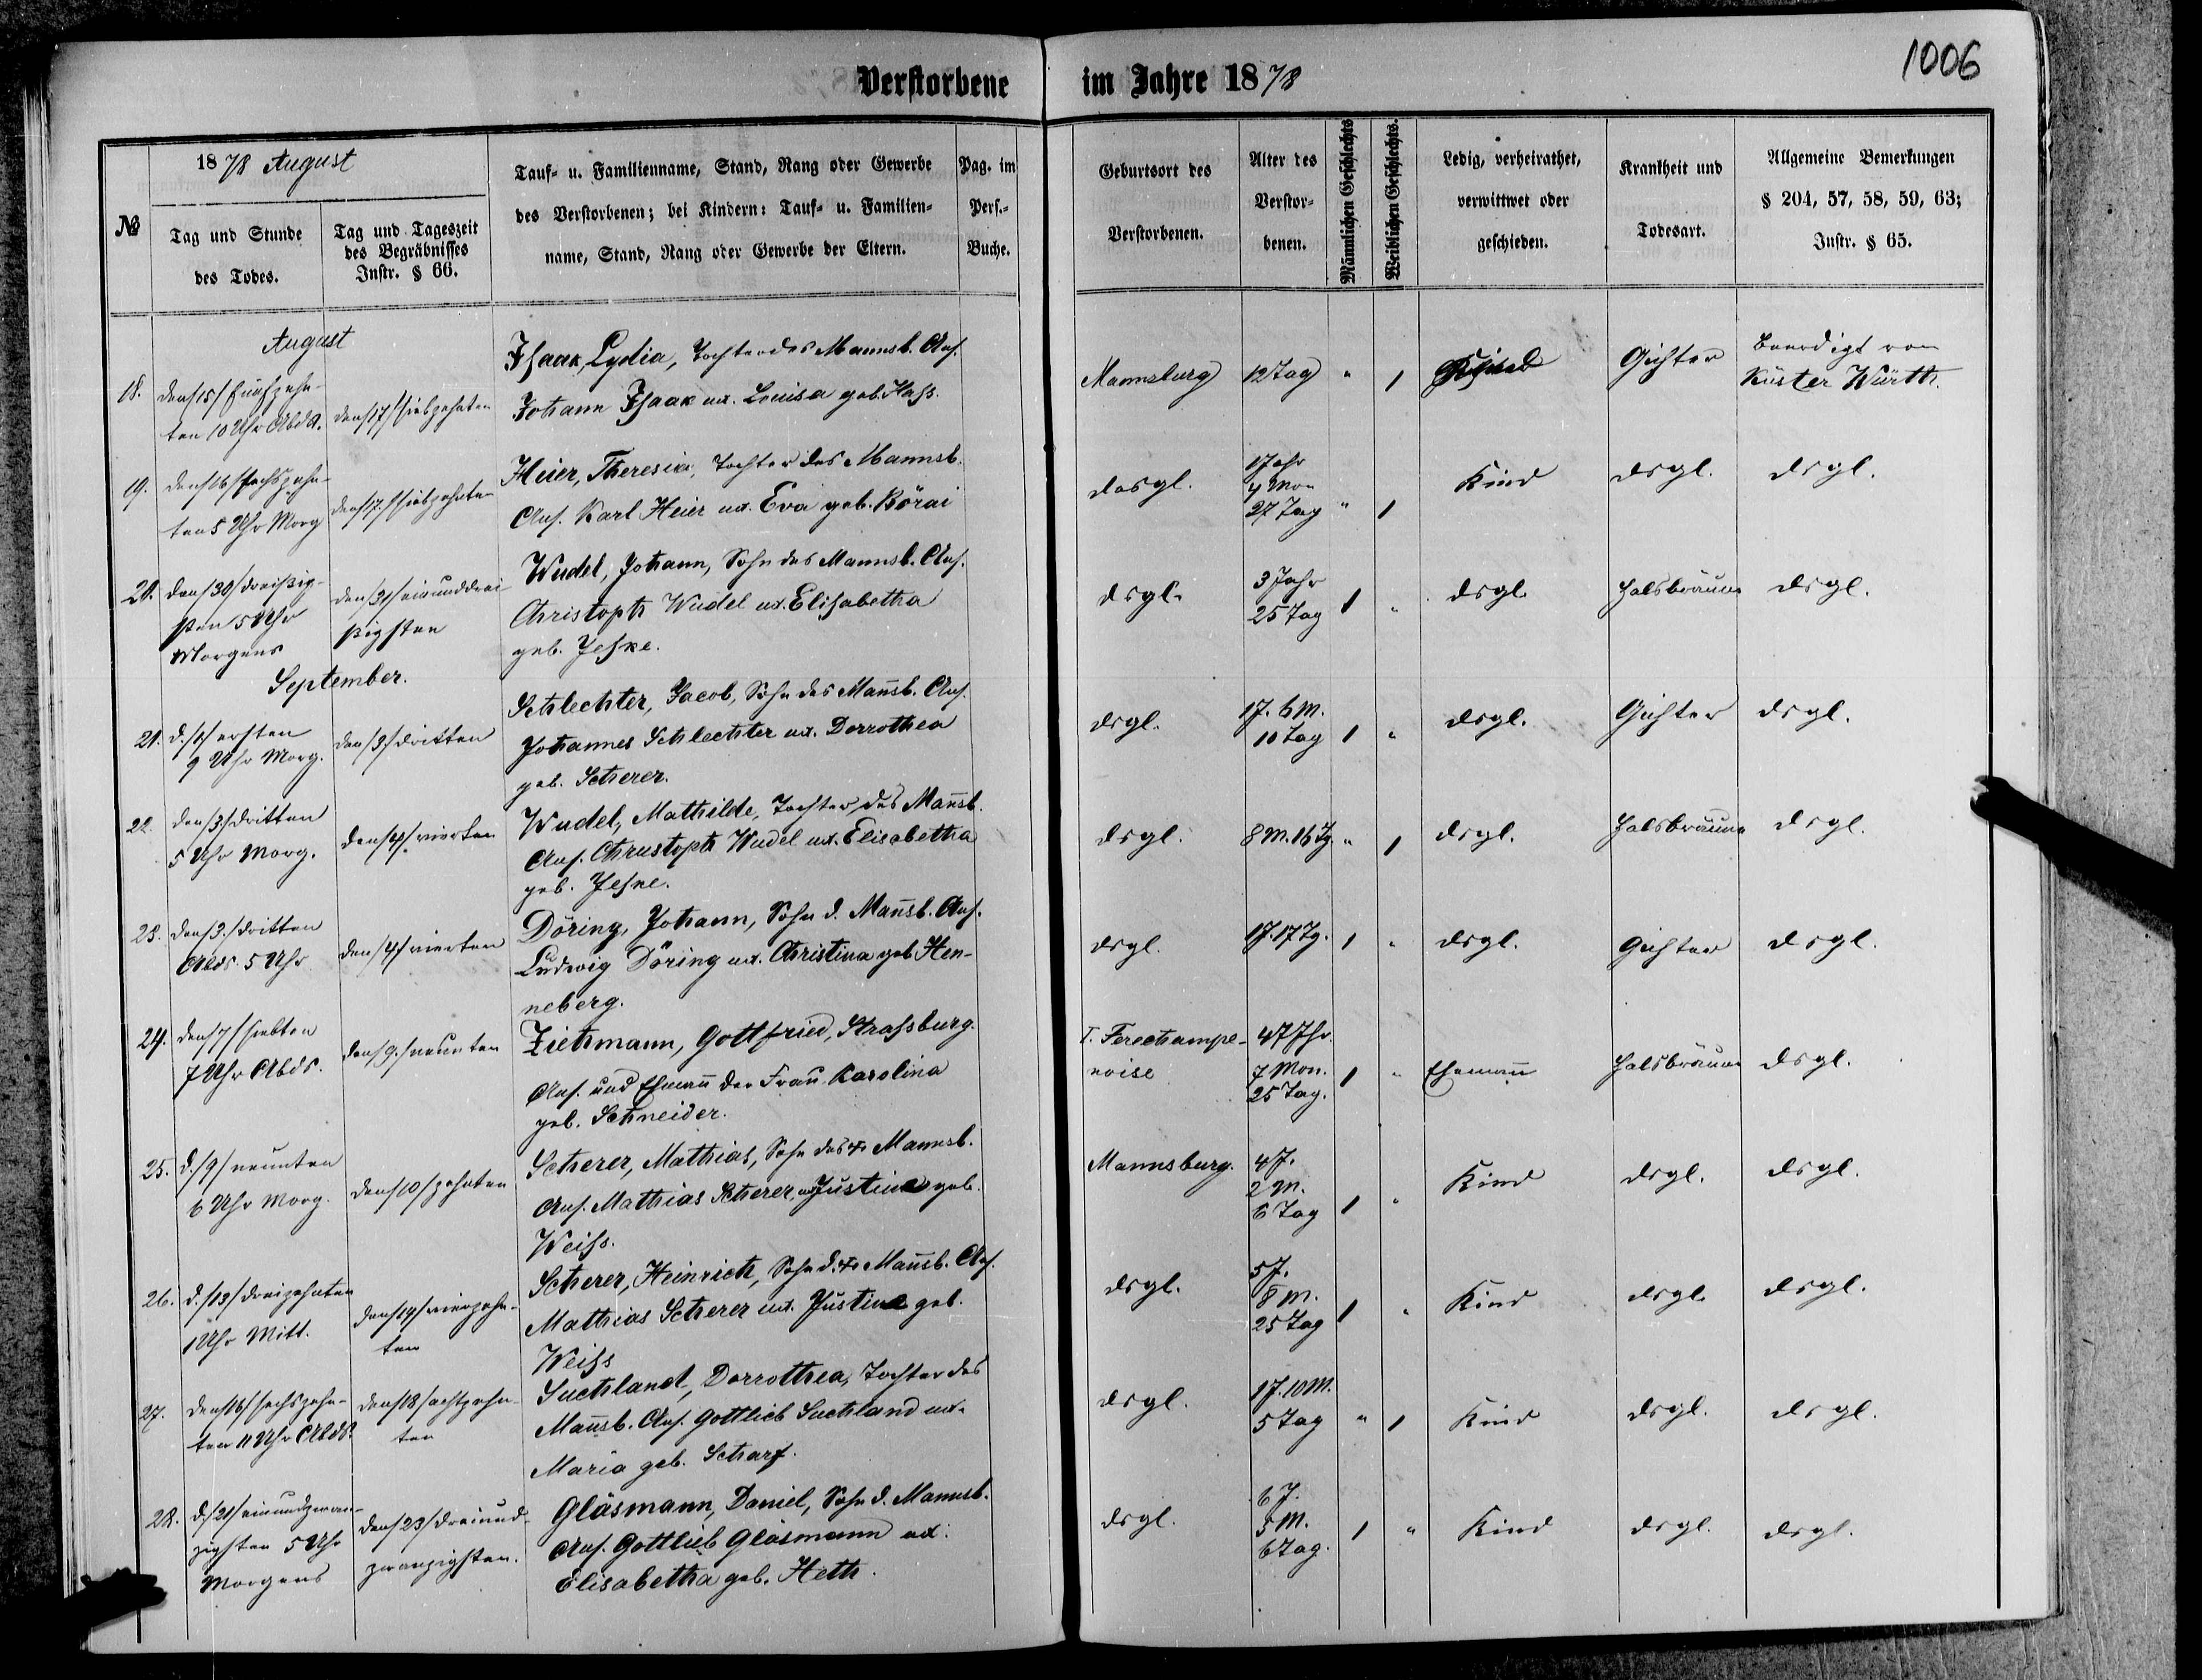 1006
Verstorbene im Jahre 1878
№
1878 August
Tag und Stunde
des Todes.
Tag und Tageszeit
des Begräbnisses
Instr. § 66.
Tauf- u. Familienname, Stand, Rang oder Gewerbe
des Verstorbenen; bei Kindern: Tauf- u. Familien-
name, Stand, Rang oder Gewerbe der Eltern.
Pag. im
Pers.-
Buche.
Geburtsort des
Verstorbenen.
Alter des
Verstor-
benen.
Männlichen Geschlechts
Weiblichen Geschlechts.
Ledig, verheirathet,
verwittwet oder
geschieden.
Krankheit und
Todesart.
Allgemeine Bemerkungen
§ 204, 57, 58, 59, 63;
Instr. § 65.
August
18.
den /15/ fünfzehn-
ten 10 Uhr Abds.
den /17/ siebzehnten
Isaak, Lydia, Tochter des Mannsb. Ans.
Johann Isaak ux. Louisa geb. Hass.
Mannsburg
12 Tag
" 1
Kind
Gichter
Beerdigt von
Küster Würth.
19.
den /16/ sechszehn-
ten 5 Uhr Morg
den /17./ siebzehnten
Heier, Theresia, Tochter des Mannsb.
Ans. Karl Heier ux. Eva geb. Börai
desgl.
1 Jahr
4 Mon
27 Tag
" 1
Kind
dsgl.
dsgl.
20.
den /30/ dreißig-
sten 5 Uhr
Morgens
den /31/ einunddrei-
ßigsten
Wudel, Johann, Sohn des Mannsb. Ans.
Christoph Wudel ux. Elisabetha
geb. Jeske.
dsgl.
3 Jahr
25 Tag
1 "
dsgl.
Halsbräune
dsgl.
September.
21.
d. /1/ ersten
9 Uhr Morg.
den /3/ dritten
Schlechter, Jacob, Sohn des Mañsb. Ans.
Johannes Schlechter ux. Dorrothea
geb. Scherer.
dsgl.
1 J. 6 M.
10 Tag
1 "
dsgl.
Gichter
dsgl.
22.
den /3./ dritten
5 Uhr Morg.
den /4/ vierten
Wudel, Mathilde, Tochter des Mañsb.
Ans. Christoph Wudel ux. Elisabetha
geb. Jeske.
dsgl.
8 M. 16 Tg.
" 1
dsgl.
Halsbräune
dsgl.
23.
den /3./ dritten
Abds. 5 Uhr
den /4/ vierten
Döring, Johann, Sohn d. Mañsb. Ans.
Ludwig Döring ux. Christina geb. Hen-
neberg.
dsgl.
1 J. 17 Tg.
1 "
dsgl.
Gichter
dsgl.
24.
den /7/ siebten
7 Uhr Abds.
den /9./ neunten
Ziehmann, Gottfried, Strassburg.
Ans. und Ehemañ der Frau Karolina
geb. Schneider.
I. Ferechampe-
noise
47 Jhr.
7 Mon.
25 Tag.
1 "
Ehemañ
Halsbräune
dsgl.
25.
d. /9/ neunten
6 Uhr Morg.
den /10/ zehnten
Scherer, Mathias, Sohn des + Mannsb.
Ans. Mathias Scherer, ux. Justine geb.
Weiss.
Mannsburg.
4 J.
2 M.
6 Tag
1 "
Kind
dsgl.
dsgl.
26.
d. /13/ dreizehnten
1 Uhr Mitt.
den /14/ vierzehn-
ten
Scherer, Heinrich, Sohn d. + Mañsb. Ans.
Mathias Scherer ux. Justine geb.
Weiss
dsgl.
5 J.
8 M.
25 Tag
1 "
Kind
dsgl.
dsgl.
27.
den /16/ sechszehn-
ten 11 Uhr Abds.
den /18/ achtzehn-
ten
Suchland, Dorrothea, Tochter des
Mañsb. Ans. Gottlieb Suchland ux.
Maria geb. Scharf.
dsgl.
1 J. 10 M.
5 Tag
" 1
Kind
dsgl.
dsgl.
28.
d. /21/ einundzwan-
zigsten 5 Uhr
Morgens
den /23/ dreiund-
zwanzigsten.
Gläsmann, Daniel, Sohn d. Mannsb.
Ans. Gottlieb Gläsmann ux.
Elisabetha geb. Heth.
dsgl.
6 J.
5 M.
6 Tag.
1 "
Kind
dsgl.
dsgl.